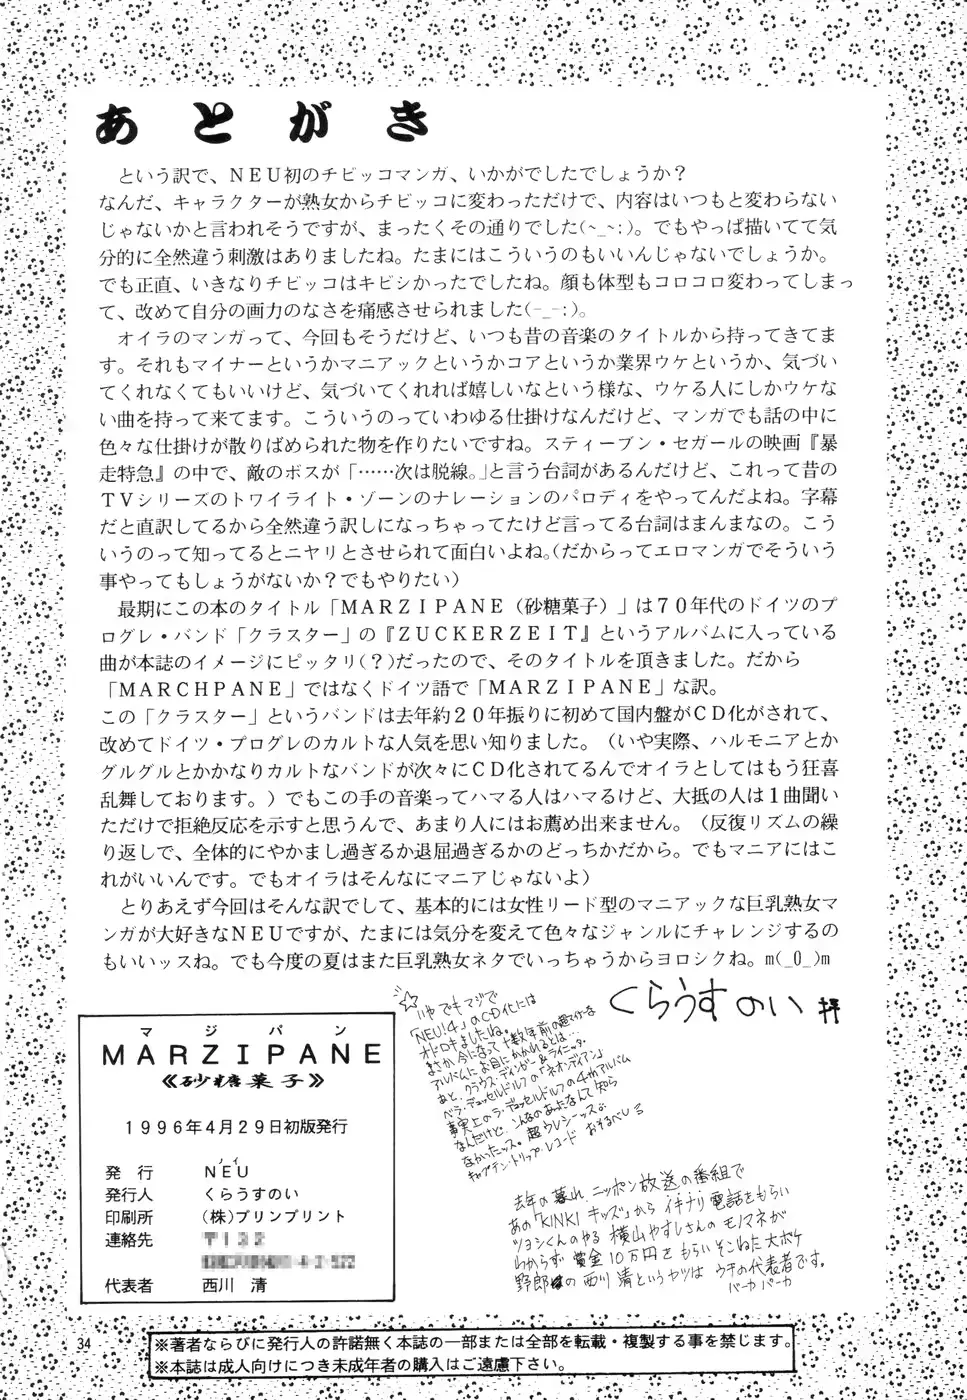 あとがき
という訳で、NEU初のチビッコマンガ、いかがでしたでしょうか？
なんだ、キャラクターが熟女からチビッコに変わっただけで、内容はいつもと変わらない
じゃないかと言われそうですが、まったくその通りでした(~_~;)。でもやっぱ描いてて気
分的に全然違う刺激はありましたね。たまにはこういうのもいいんじゃないでしょうか。
でも正直、いきなりチビッコはキビシかったでしたね。顔も体型もコロコロ変わってしまっ
て、改めて自分の画力のなさを痛感させられました(-_-;)。
オイラのマンガって、今回もそうだけど、いつも昔の音楽のタイトルから持ってきてま
す。それもマイナーというかマニアックというかコアというか業界ウケというか、気づい
てくれなくてもいいけど、気づいてくれれば嬉しいなという様な、ウケる人にしかウケな
い曲を持って来てます。こういうのっていわゆる仕掛けなんだけど、マンガでも話の中に
色々な仕掛けが散りばめられた物を作りたいですね。スティーブン・セガールの映画『暴
走特急』の中で、敵のボスが「……次は脱線。」と言う台詞があるんだけど、これって昔の
TVシリーズのトワイライト・ゾーンのナレーションのパロディをやってんだよね。字幕
だと直訳してるから全然違う訳しになっちゃってたけど言ってる台詞はまんまなの。こう
いうのって知ってるとニヤリとさせられて面白いよね。(だからってエロマンガでそういう
事やってもしょうがないか？でもやりたい)
最期にこの本のタイトル「MARZIPANE（砂糖菓子）」は７０年代のドイツのプ
ログレ・バンド「クラスター」の『ZUCKERZEIT』というアルバムに入っている
曲が本誌のイメージにピッタリ(？)だったので、そのタイトルを頂きました。だから
「MARCHPANE」ではなくドイツ語で「MARZIPANE」な訳。
この「クラスター」というバンドは去年約２０年振りに初めて国内盤がCD化がされて、
改めてドイツ・プログレのカルトな人気を思い知りました。（いや実際、ハルモニアとか
グルグルとかかなりカルトなバンドが次々にCD化されてるんでオイラとしてはもう狂喜
乱舞しております。）でもこの手の音楽ってハマる人はハマるけど、大抵の人は１曲聞い
ただけで拒絶反応を示すと思うんで、あまり人にはお薦め出来ません。（反復リズムの繰
り返しで、全体的にやかまし過ぎるか退屈過ぎるかのどっちかだから。でもマニアにはこ
れがいいんです。でもオイラはそんなにマニアじゃないよ）
とりあえず今回はそんな訳でして、基本的には女性リード型のマニアックな巨乳熟女マ
ンガが大好きなNEUですが、たまには気分を変えて色々なジャンルにチャレンジするの
もいいッスね。でも今度の夏はまた巨乳熟女ネタでいっちゃうからヨロシクね。m(_O_)m
くらうすのい 拝
☆いやでもマジで
「NEU!4」のCD化には
オドロキましたね。
まさか今になって十数年前の
アルバムにお目にかかれるとは…
あと、クラウス・ディンガー＆ライニッタ・
ベラ・デュッセルドルフの「ネオンディアン」
事実上のラ・デュッセルドルフの4thアルバム
なんだけど、こんなのあったなんて知ら
なかったッス。超ウレシーッスね
キャプテン・トリップ・レコード おそるべしる
去年の暮れ、ニッポン放送の番組で
あの「KINKIキッズ」からイキナリ電話をもらい
ツヨシくんのやる横山やすしさんのモノマネが
わからず賞金10万円をもらいそこねた大ボケ
野郎の西川清というヤツはウチの代表者です。
バーカバーカ
マジパン
MARZIPANE
《砂糖菓子》
１９９６年４月２９日初版発行
ノイ
発行 NEU
発行人 くらうすのい
印刷所 （株）プリンプリント
連絡先 〒132
代表者 西川 清
34
※著者ならびに発行人の許諾無く本誌の一部または全部を転載・複製する事を禁じます。
※本誌は成人向けにつき未成年者の購入はご遠慮下さい。